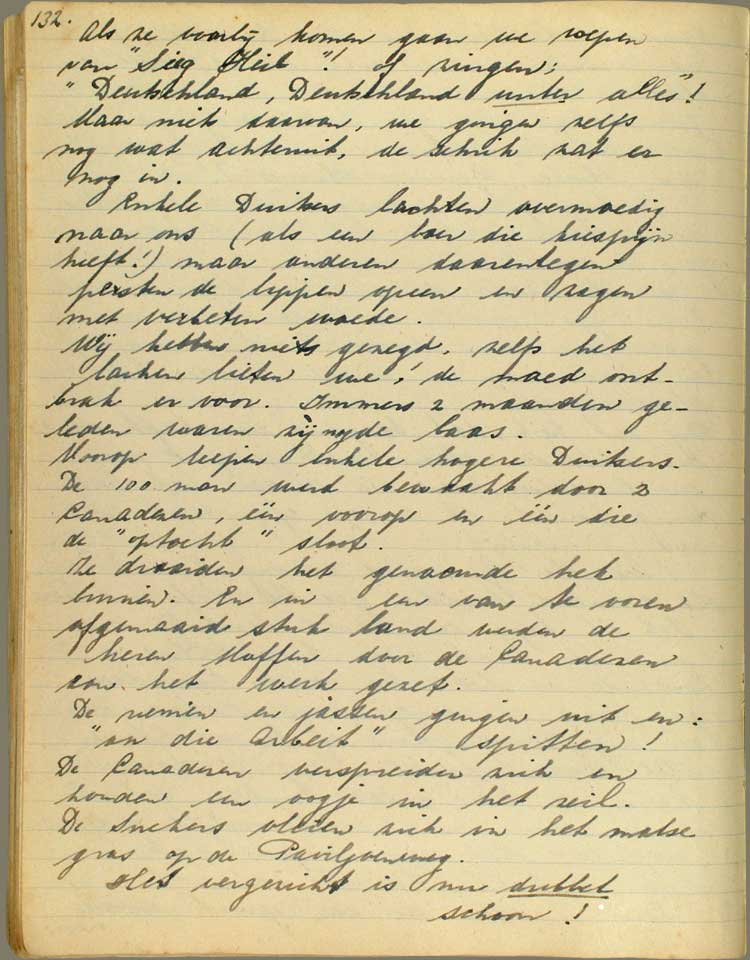 132.
Als ze voorbij komen gaan we roepen
van "Sieg Heil"! of zingen;
"Deutschland, Deutschland unter alles"!
Maar niets daarvan, we gingen zelfs
nog wat achteruit, de schrik zat er
nog in.
Enkele Duitsers lachten overmoedig
naar ons (als een boer die kiespijn
heeft!) maar anderen daarentegen
persten de lippen opeen en zagen
met verbeten woede.
Wij hebben niets gezegd, zelfs het
lachen lieten we! de moed ont-
brak er voor. Immers 2 maanden ge-
leden waren zij nog de baas.
Voorop liepen enkele hogere Duitsers.
De 100 man werd bewaakt door 2
Canadezen, één voorop en één die
de "optocht" sloot.
Ze draaiden het genoemde hek
binnen. En in een van te voren
afgemaaid stuk land werden de
heren Moffen door de Canadezen
aan het werk gezet.
De riemen en jassen gingen uit en:
"an die Arbeit" spitten!
De Canadezen verspreiden zich en
houden een oogje in het zeil.
De vleien zich in het malse
gras op de Paviljoenweg.
Het vergezicht is nu dubbel
schoon!